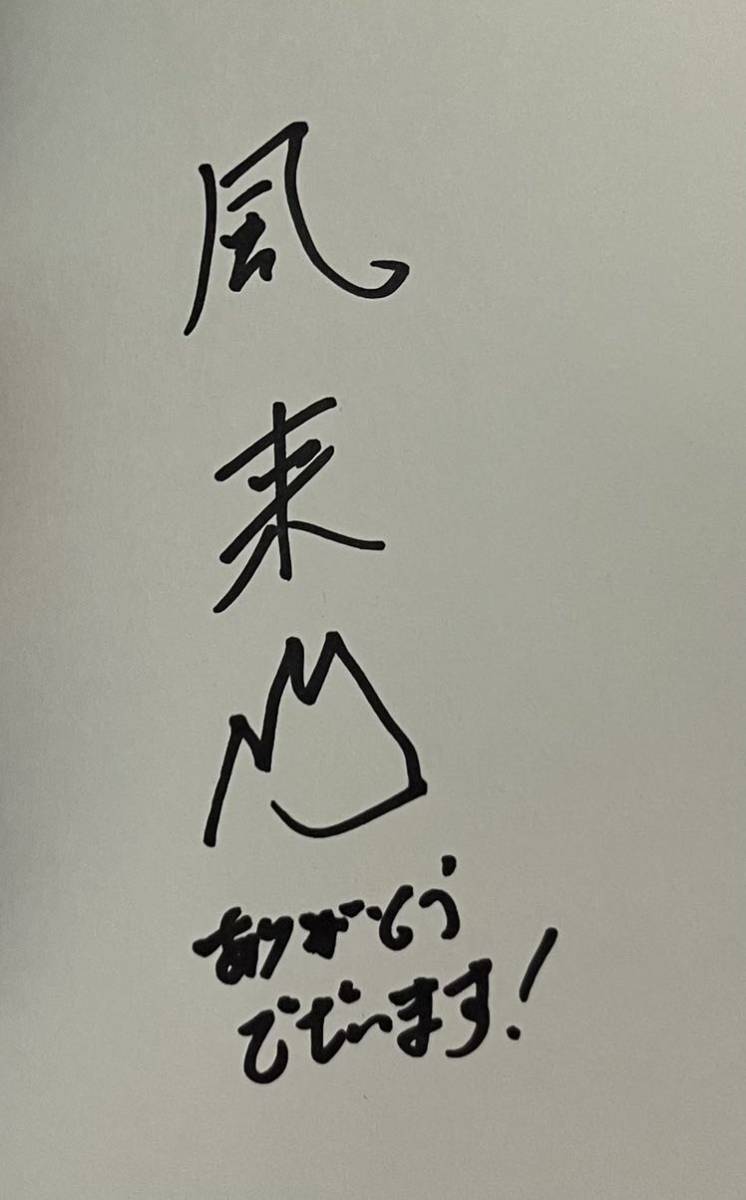 風来
ありがとう
ございます!